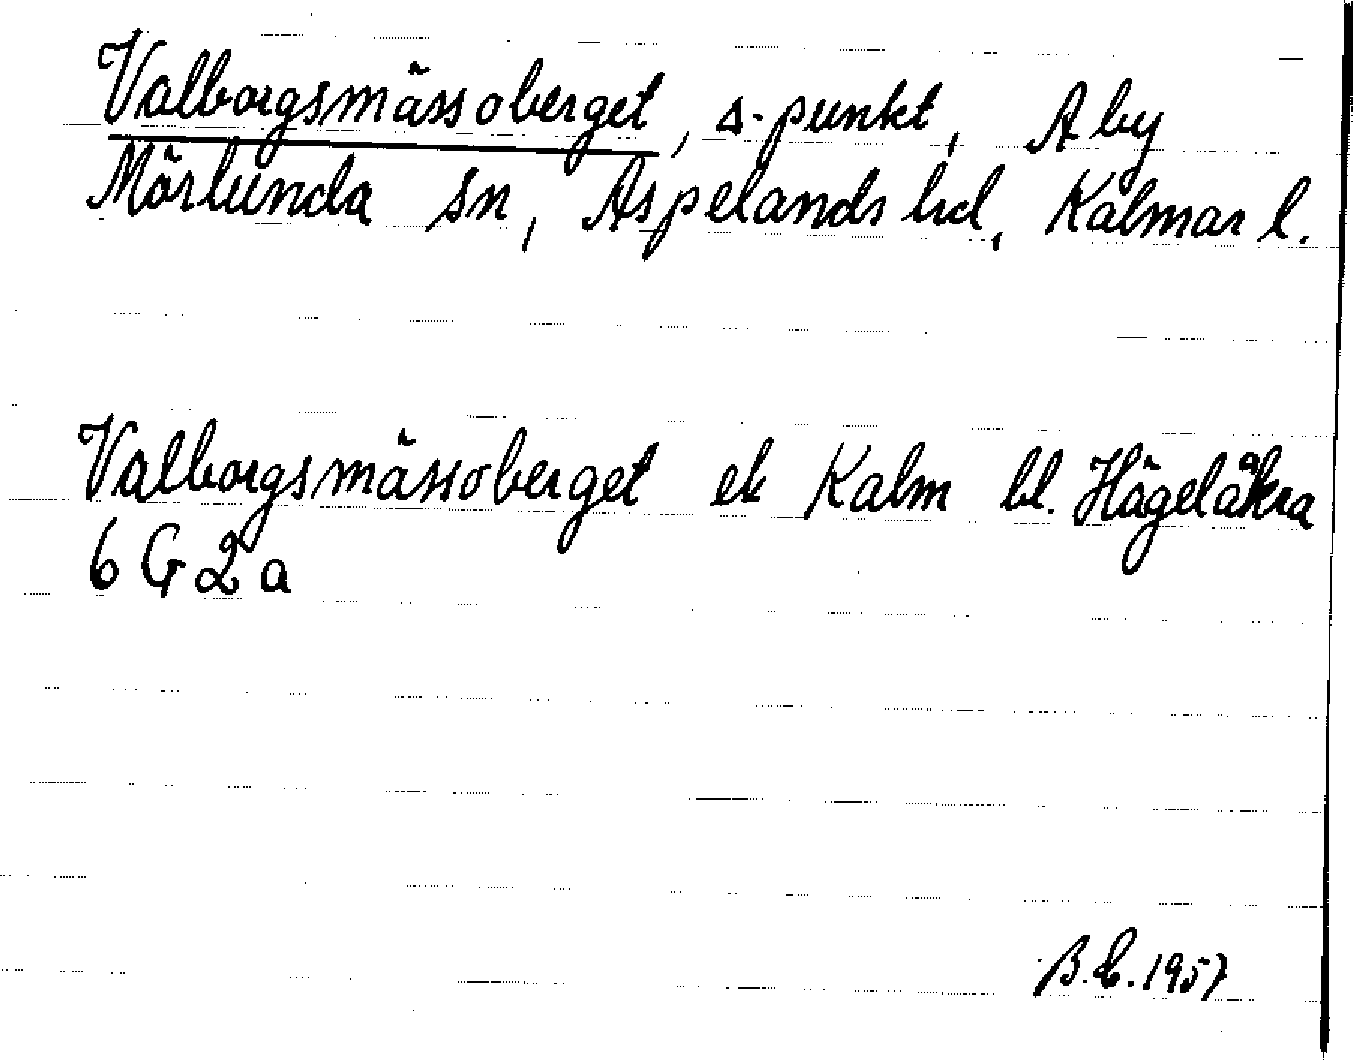 Valborgsmässoberget, ∆-punkt, Åby
Mörlunda sn, Aspelands hd, Kalmar l.
Valborgsmässoberget ek Kalm bl. Högelåkra
6 G 2 a
B.E. 1957